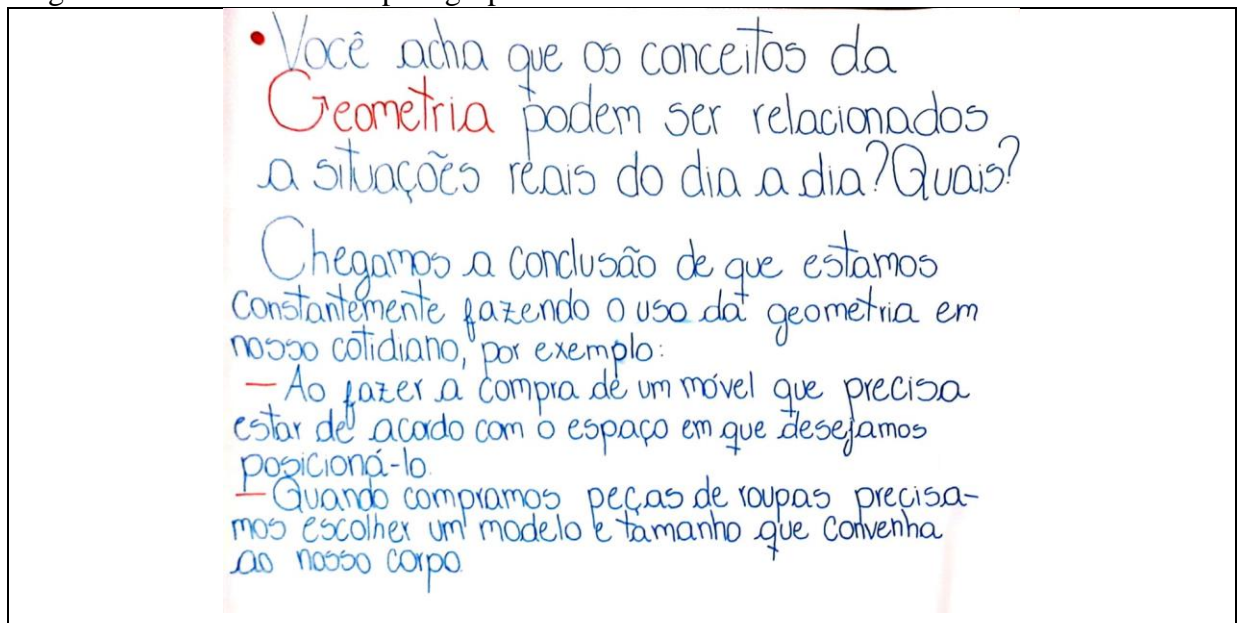 •Você acha que os conceitos da
Geometria podem ser relacionados
a situações reais do dia a dia? Quais?
Chegamos a conclusão de que estamos
constantemente fazendo o uso da geometria em
nosso cotidiano, por exemplo:
— Ao fazer a compra de um móvel que precisa
estar de acordo com o espaço em que desejamos
posicioná-lo.
— Quando compramos peças de roupas precisa-
mos escolher um modelo e tamanho que convenha
ao nosso corpo